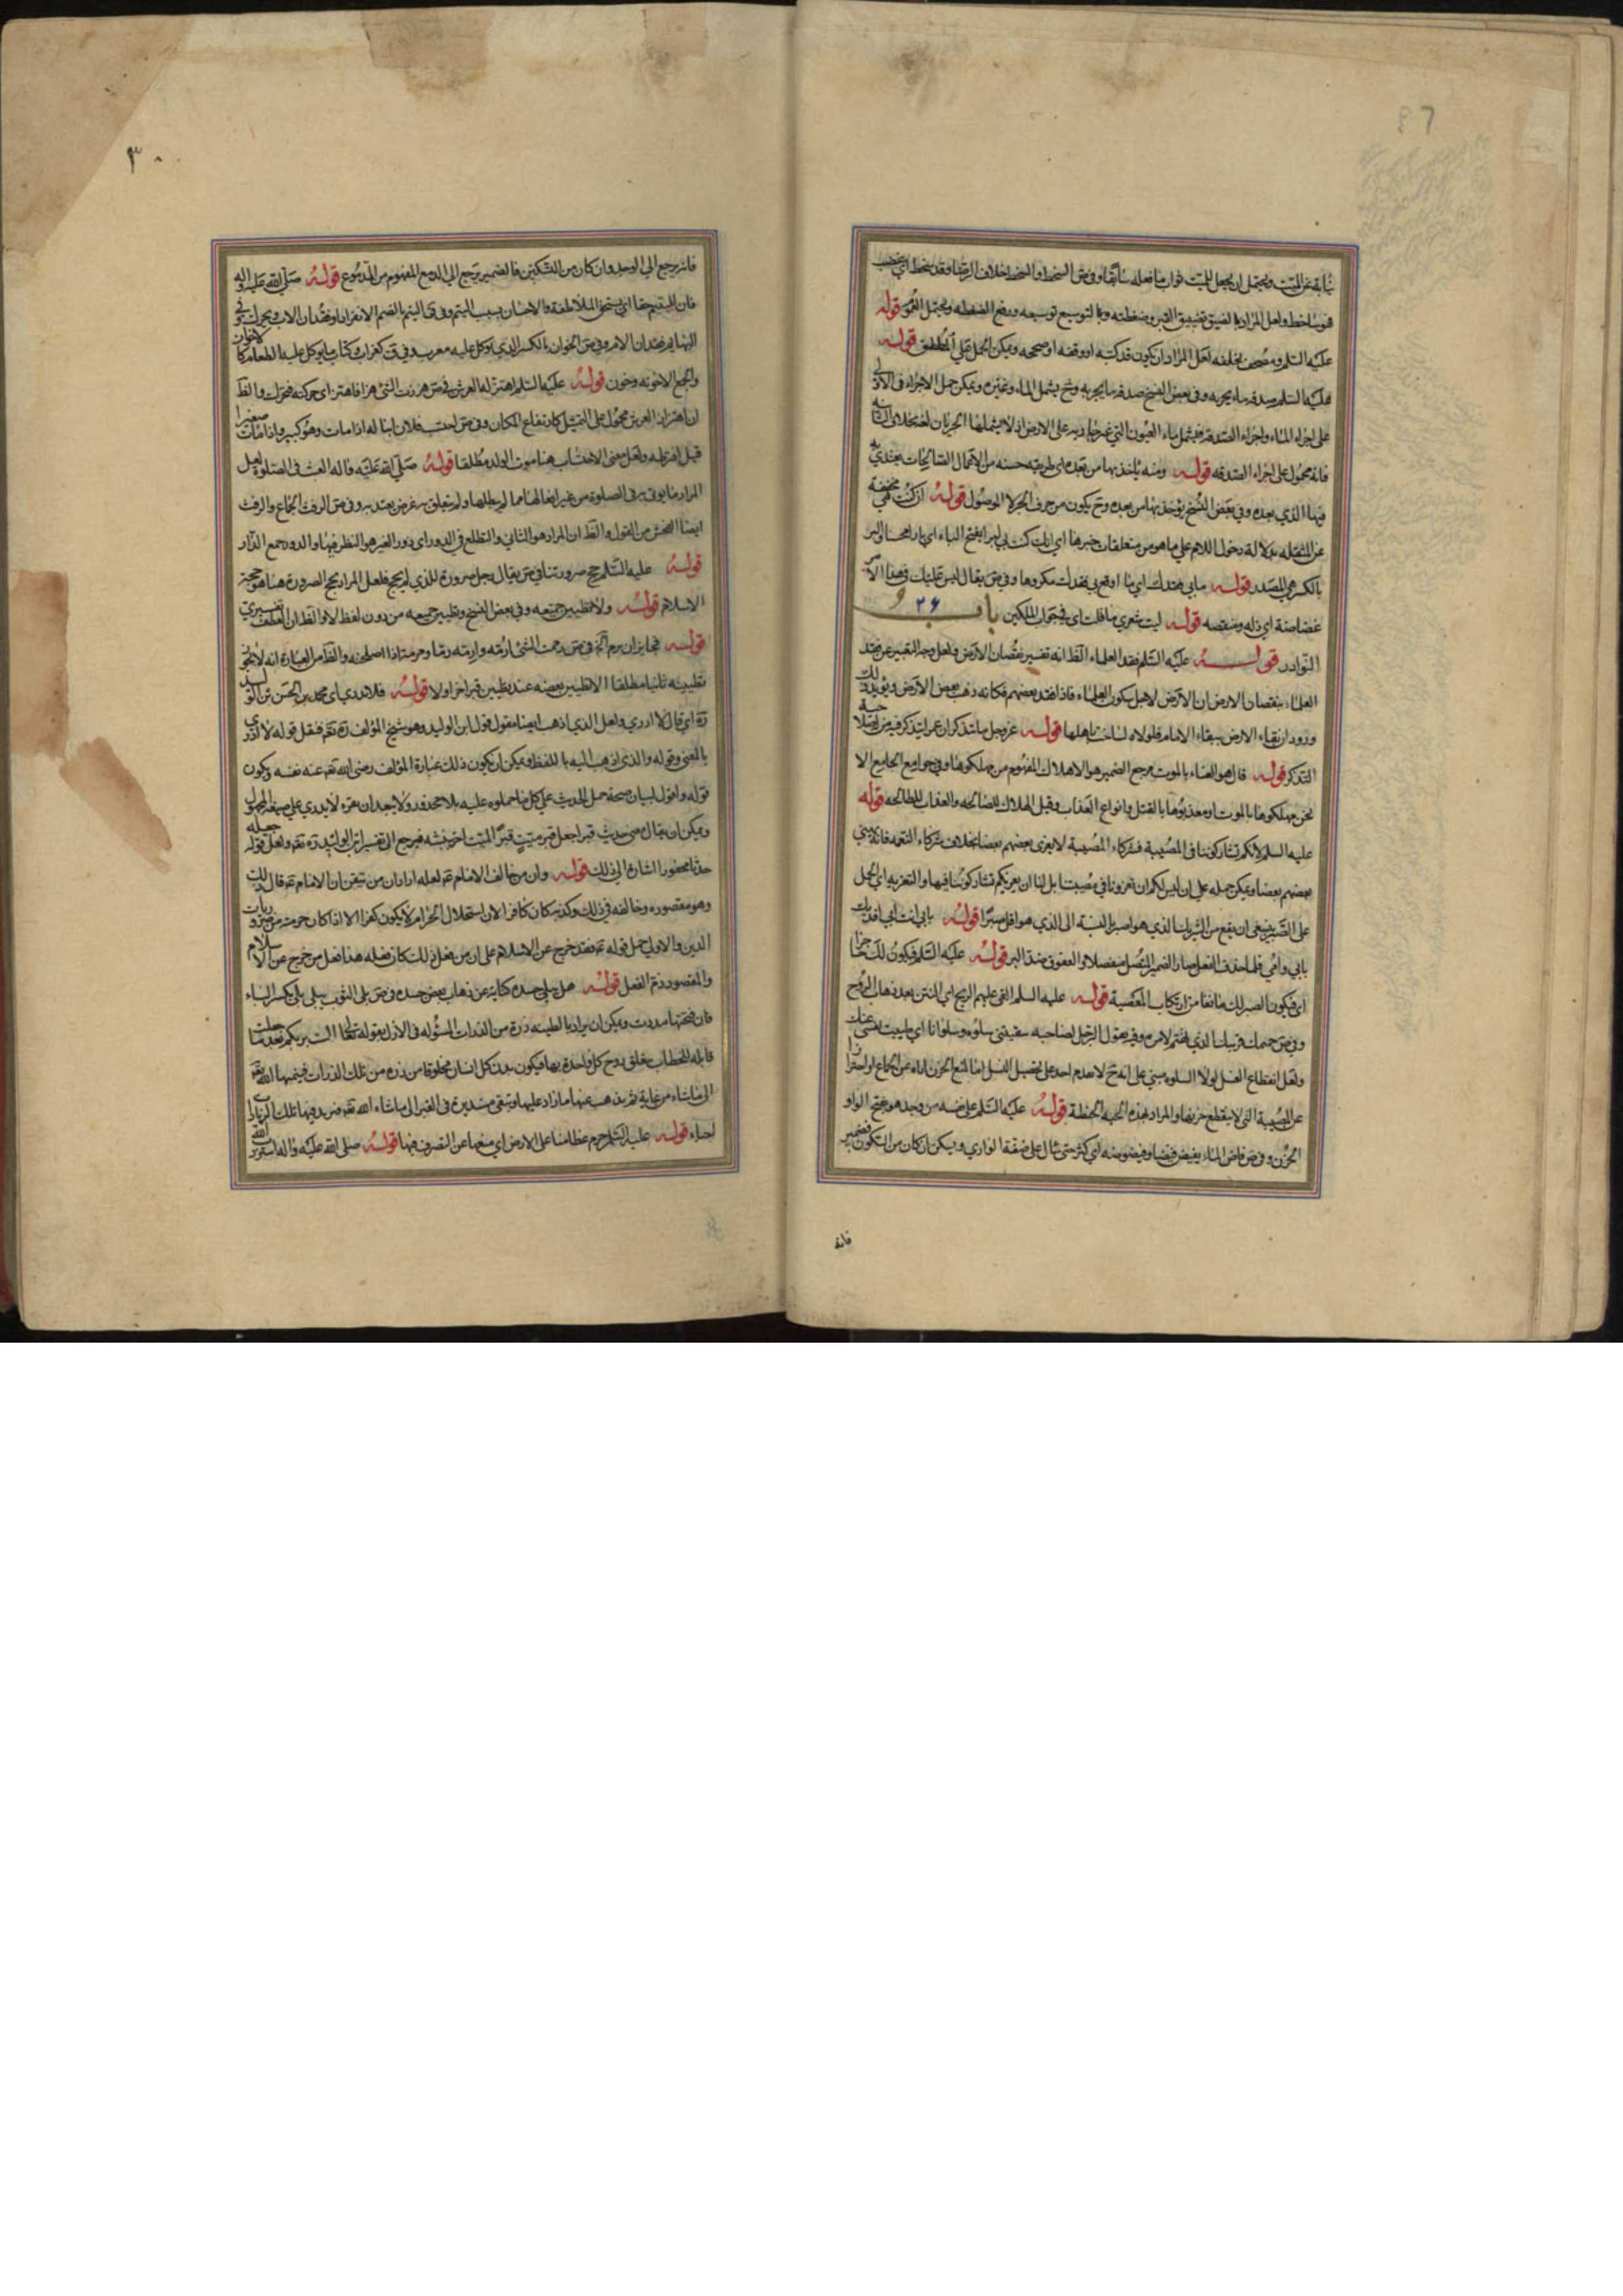 نيابة عن الميت ويحتمل ان يجعل للميت ثواب ما فعله سابقا وفي ص السخط والسخط خلاف الرضا وقد سخط اي غضب
فهو ساخط ولعل المراد بالضيق تضييق القبر وضغطته وبالتوسيع توسيعه ودفع الضغطه ويحتمل العموم قوله
عليه السلم ومصحف يخلفه لعل المراد ان يكون قد كتبه او وقفه او صححه ويمكن الحمل على المطلق قوله
عليه السلم صدقه ماء يجريه وفي بعض النسخ صدقه ما يجريه وح يشمل الماء وغيره ويمكن حمل الاجراء في الاولى
على اجراء الماء واجراء الصدقه فيشمل ماء العيون التي لانه على الارض اذ لا يشملها الجريان لغة بخلاف الثانيه
فانه محمول على اجراء الصدقه قوله ومنه يأخذ بها من بعده اى طريقه حسنه من الاعمال الصالحات يقتدي به
فيها الذي بعده وفي بعض النسخ يؤخذ بها من بعده وح يكون من حرف الجر لا الموصول قوله ان كنت هي مخففه
عن المثقله بدلالة دخول اللام على ما هو من متعلقات خبرها اي انك كنت بي لبرا بفتح الباء اي بارا محسنا والبر
بالكسر هي المصدر قوله ما بي فقدك اي ما اوقع بي فقدك مكروها وفي ص يقال ليس عليك في هذا الامر
غضاضة اي ذله ومنقصه قوله ليت شعري ما قلت اى في جواب الملكين باب ۲۶
النوادر قوله عليه السلم فقد العلماء الظ انه تفسير نقصان الارض ولعل وجه التعبير عن فقد
العلماء بنقصان الارض ان الارض لاجل سكون العلماء فاذا فقد بعضهم فكانه ذهب بعض الارض ويؤيد ذلك
ورود ان بقاء الارض ببقاء الامام فلولاه لساخت باهلها قوله عز وجل ما يتذكر ان عمر ليتذكر فيه من
التذكر قوله قال هو الفناء بالموت مرجع الضمير هو الاهلاك المفهوم من مهلكوها وفي جوامع الجامع الا
نحن مهلكوها بالموت او معذبوها بالقتل وانواع العذاب وقيل الهلاك للصالحه والعذاب للطالحه قوله
عليه السلم لانكم تشاركوننا في المصيبة فشركاء المصيبة لا يعزى بعضهم بعضا بخلاف شركاء النعمه فانه يهني
بعضهم بعضا ويمكن حمله على ان ليس لكم ان تعزونا في مصيبتنا بل لنا ان نعزيكم تشاركوننا فيها والتعزيه اي الحمل
على الصبر ينبغي ان يقع من الشريك الذي هو اصبر بالنسبة الى الذي هو اقل صبرا قوله بابي انت اى افديك
بابي وامي فلما حذف الفعل صار الضمير المتصل منفصلا والعقوق ضد البر قوله عليه السلم فيكون لك حجابا
اى فيكون الصبر لك مانعا من ارتكاب المعصية قوله عليه السلم القى عليهم الريح اي النتن بعد ذهاب الروح
وفي ص حميمك قريبك الذي تهتم لامره وفيه يقول الرجل لصاحبه سقيتني سلوة وسلوانا اي طيبت نفسي عنك
ولعل انقطاع النسل لولا السلوه مبني على انه ح لا يعدم احد على تحصيل النسل اما لمنع الحزن اياه عن الجماع او احترازا
عن المصيبة التي لا ينقطع حزنها والمراد بهذه الحبه الحنطة قوله عليه السلم على نفسه من وجد هو بفتح الواو
الحزن وفي ص فاض الماء يفيض فيضا وفيضوضه اي كثر حتى سال على ضفة الوادي ويمكن ان كان من السكون فضمير
فانه
۳۰
فانه يرجع الى الوجد وان كان من التسكين فالضمير يرجع الى الدمع المفهوم من الدموع قوله صلى الله عليه واله
فان لليتيم حقا اي يستحق الملاطفة والاحسان بسبب اليتم وفي ق اليتم بالضم الانفراد او فقدان الاب ويحرك وفي
البهايم فقدان الام وفي ص الخوان بالكسر الذي يؤكل عليه معرب وفي ق كغراب وكتاب ما يؤكل عليه الطعام كالاخوان
والجمع الاخونه وخون قوله عليه السلم اهتز له العرش في ص هززت الشئ هزا فاهتز اى حركته فتحرك والظ
ان اهتزاز العرش محمول على التمثيل كارتفاع المكان وفي ص احتسب فلان ابنا له اذا مات وهو كبير واذا مات صغيرا
قيل افرطه ولعل معنى الاحتساب هنا موت الولد مطلقا قوله صلى الله عليه واله العبث في الصلوة لعل
المراد ما يوتى به في الصلوة من غير افعالها مما لم يبطلها ولم يتعلق به غرض يعتد به وفي ص الرفث الجماع والرفث
ايضا الفحش من القول والظ ان المراد هو الثاني والتطلع في الدور اى دور الغير هو النظر فيها والدور جمع الدار
قوله عليه السلم حج صرورتنا في ص يقال رجل صرورة للذي لم يحج فلعل المراد بحج الصرورة هنا هو حجة
الاسلام قوله ولا تطيين جميعه وفي بعض النسخ وتطيين جميعه من دون لفظ لا والظ ان العطف تفسيري
قوله فجايز ان يرم الخ في ص رممت الشئ ارمه وارمه رما ومرمة اذا اصلحته والظ من العبارة انه لا يجوز
تطيينه ثانيا مطلقا الا تطيين بعضه عند تطيين قبر اخر اولا قوله فلا ندري اى محمد بن الحسن بن الوليد
ره اي قال لا ادري ولعل الذي اذهب ايضا مقول قول ابن الوليد وهو شيخ المؤلف ره تقه فنقل قوله لا ادري
بالمعنى وقوله والذي اذهب اليه باللفظ ويمكن ان يكون ذلك عبارة المؤلف رضى الله تعه عنه نفسه ويكون
قوله واقول لبيان صحة حمل الحديث على كل ما حملوه عليه بلا محذور ولا يبعد ان يقره لا يدري على صيغه المجهول
ويمكن ان يقال معنى حديث قبرا جعل قبر ميت قبرا لميت اخر بنبشه فيرجع الى تفسير ابن الوليد ره تعه ولعل قوله جعله
حدثا محظورا اشارة الى ذلك قوله وان من خالف الامام تعه لعله اراد ان من تيقن ان الامام تعه قال ذلك
وهو مقصوره وخالفه في ذلك وكذبه كان كافرا لان استحلال الحرام لا يكون كفرا الا اذا كان حرمته من ضروريات
الدين والاولى حمل قوله عه فقد خرج عن الاسلام على ان من يفعل ذلك كان فعله هذا فعل من خرج عن الاسلام
والمقصود ذم الفعل قوله هل يبلى جسده كناية عن ذهاب بعض جسده وفي ص بلى الثوب يبلى بلى بكسر الباء
فان فتحتها مددت ويمكن ان يراد بالطينه ذرة من الذرات المسؤله في الازل بقوله تعالى الست بربكم بعد ما جعلت
قابله للخطاب بتعلق روح كل واحدة بها فيكون بدن كل انسان مخلوقا من ذرة من تلك الذرات فينميها الله تعه
الى ما شاء من غاية ثم يذهب عنها ما زاد عليها وتبقى مستديرة في القبر الى ما شاء الله تعه فيزيد فيها تلك الزيادات
احياء قوله عليه السلم حرم عظامنا على الارض اي منعها عن التصرف فيها قوله صلى الله عليه واله استزيد الله